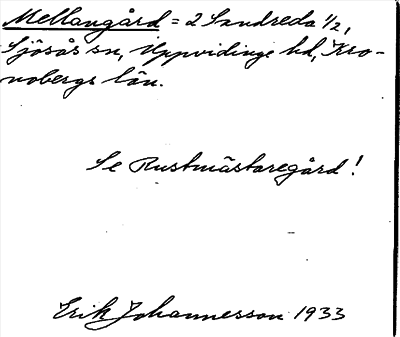 Mellangård = 2 Sandreda 1/2,
Sjösås sn, Uppvidinge hd, Kro-
nobergs län.
Se Rustmästaregård!
Erik Johannesson 1933